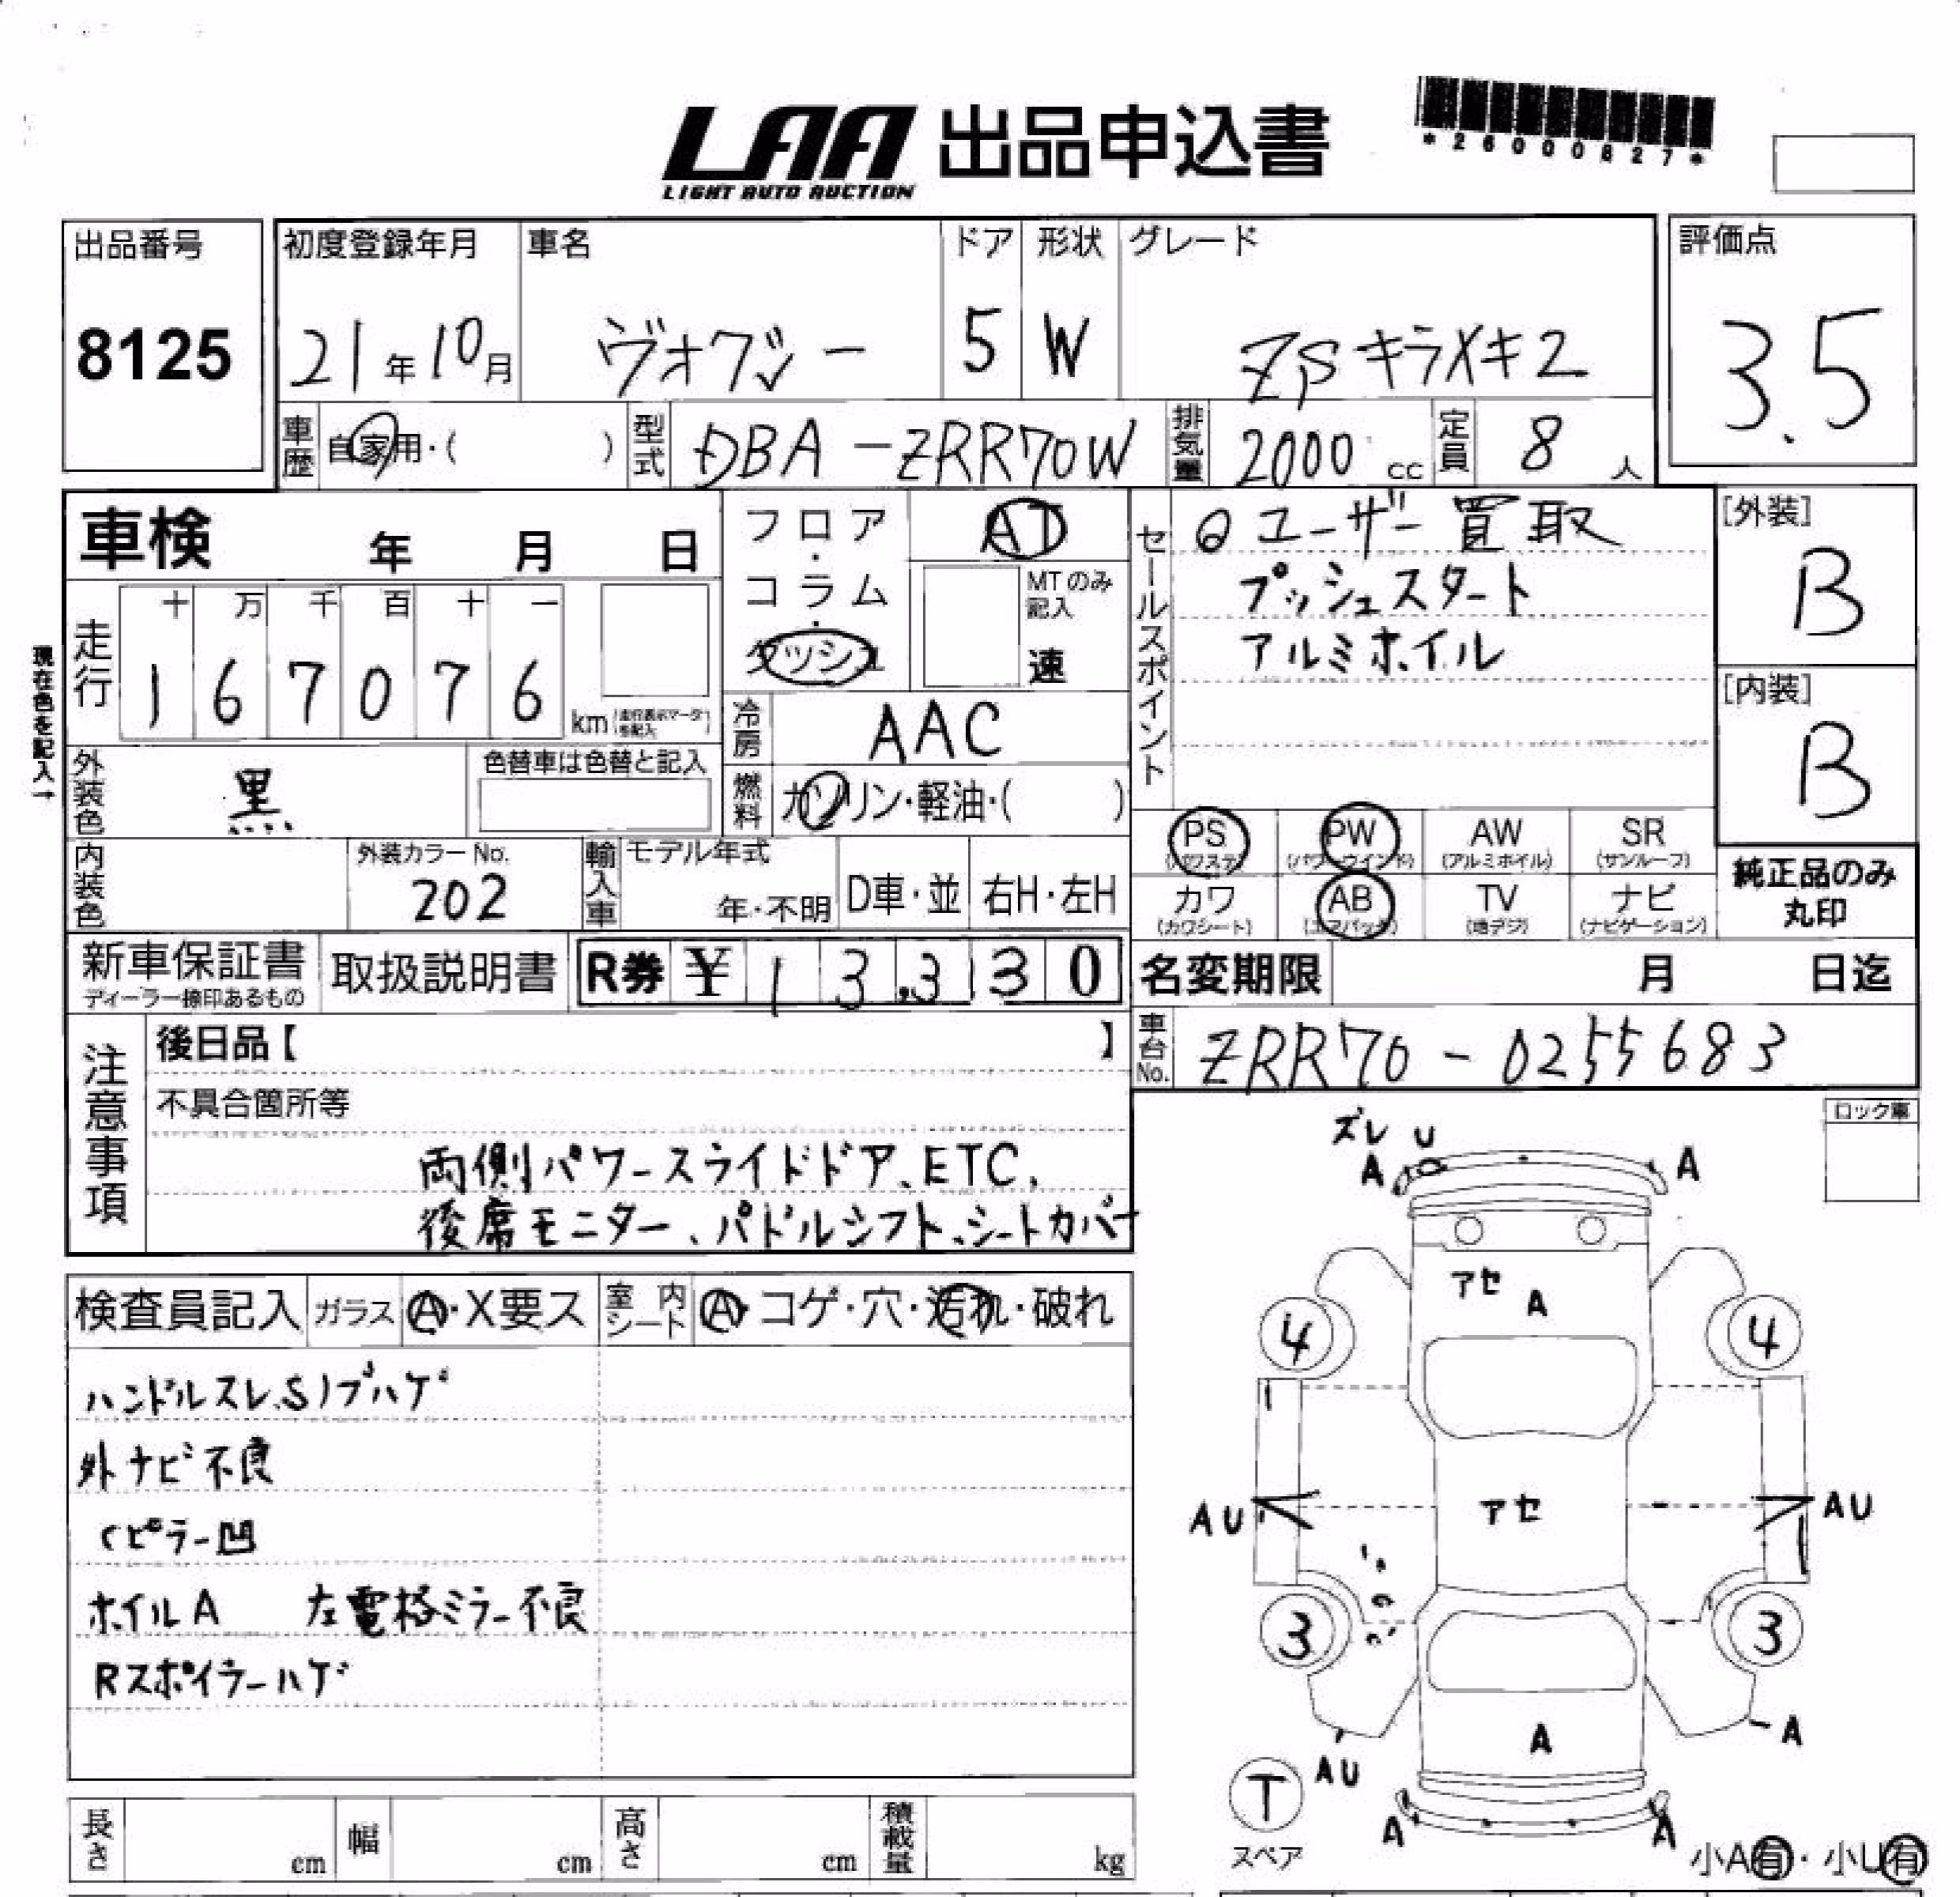 LAA 出品申込書
LIGHT AUTO AUCTION
*26000827*
出品番号
8125
初度登録年月
21年10月
車名
ヴォクシー
ドア
5
形状
W
グレード
ZSキラメキ2
評価点
3.5
車歴
自家用・( )
型式
DBA-ZRR70W
排気量
2000 cc
定員
8 人
車検 年 月 日
フロア・コラム・ダッシュ
AT
MTのみ記入
速
セールスポイント
◎ユーザー買取
プッシュスタート
アルミホイル
[外装]
B
[内装]
B
現在色を記入→
走行
十 万 千 百 十 一
1 6 7 0 7 6 km
(走行表示マータを記入)
冷房
AAC
外装色
黒
色替車は色替と記入
燃料
ガソリン・軽油・( )
PS (パワステ)
PW (パワーウインド)
AW (アルミホイル)
SR (サンルーフ)
内装色
外装カラーNo.
202
輸入車
モデル年式
年・不明
D車・並
右H・左H
カワ (カワシート)
AB (エアバック)
TV (地デジ)
ナビ (ナビゲーション)
純正品のみ
丸印
新車保証書
ディーラー捺印あるもの
取扱説明書
R券 ¥ 13,330
名変期限 月 日迄
車台No.
ZRR70-0255683
注意事項
後日品【 】
不具合箇所等
両側パワースライドドア、ETC、
後席モニター、パドルシフト、シートカバー
ロック車
ズレ U
A A
アセ A
4 4
アセ
AU AU
3 3
A
A
AU
T
スペア
A A
小A有・小U有
検査員記入
ガラス
A・X要ス
室内シート
A・コゲ・穴・汚れ・破れ
ハンドルスレ、Sノブハゲ
外ナビ不良
Cピラー凹
ホイルA 左電格ミラー不良
Rスポイラーハゲ
長さ cm
幅 cm
高さ cm
積載量 kg